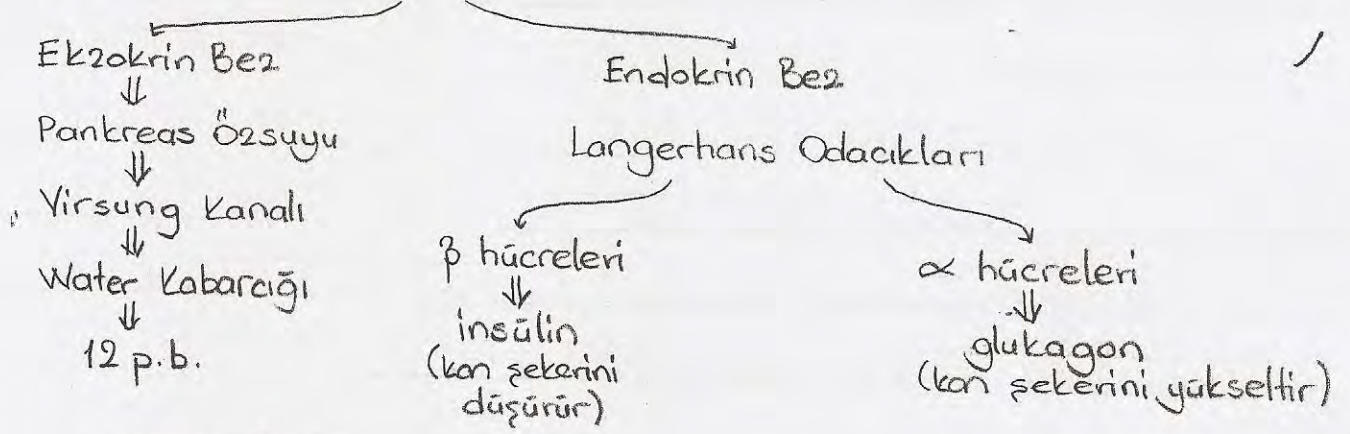 Ekzokrin Bez
⇓
Pankreas Özsuyu
⇓
Virsung Kanalı
⇓
Water Kabarcığı
⇓
12 p.b.
Endokrin Bez
Langerhans Odacıkları
β hücreleri
⇓
insülin
(kan şekerini
düşürür)
α hücreleri
⇓
glukagon
(kan şekerini yükseltir)